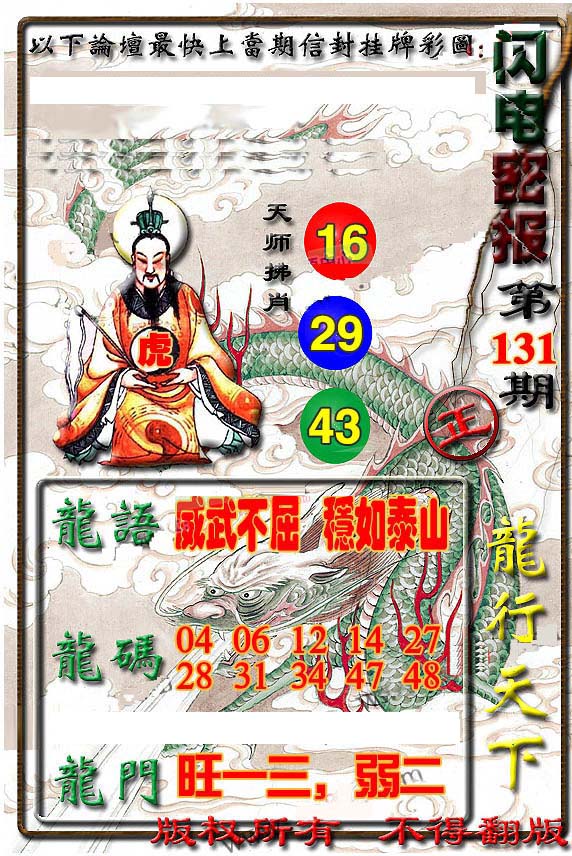 以下論壇最快上當期信封挂牌彩圖:
闪电密报
第
131
期
天师拂肖
16
29
43
虎
正
龍語 威武不屈 穩如泰山
龍碼 04 06 12 14 27
28 31 34 47 48
龍門 旺一三，弱二
龍行天下
版权所有 不得翻版